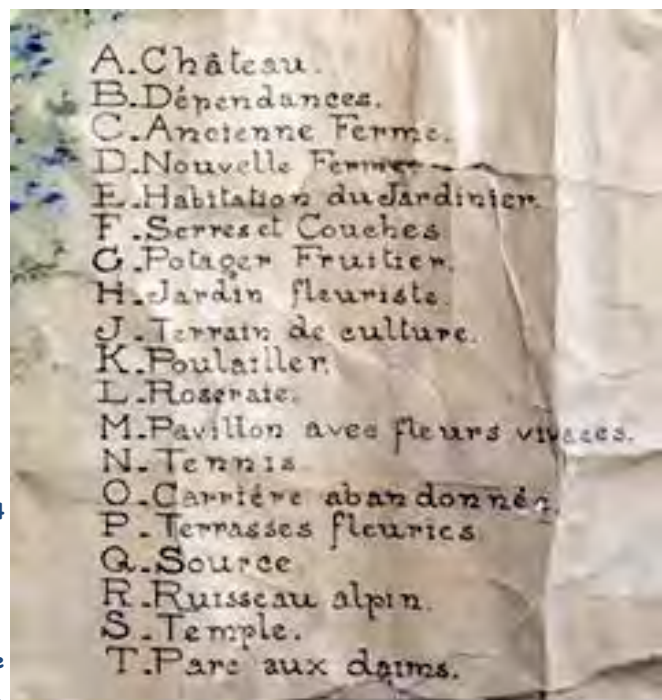 A.Château.
B.Dépendances.
C.Ancienne Ferme.
D.Nouvelle Ferme
E.Habitation du Jardinier.
F.Serres et Couches
G.Potager Fruitier.
H.Jardin fleuriste.
J.Terrain de culture.
K.Poulailler.
L.Roseraie.
M.Pavillon avec fleurs vivaces.
N.Tennis
O.Carrière abandonnée.
P.Terrasses fleuries
Q.Source
R.Ruisseau alpin.
S.Temple.
T.Parc aux daims.